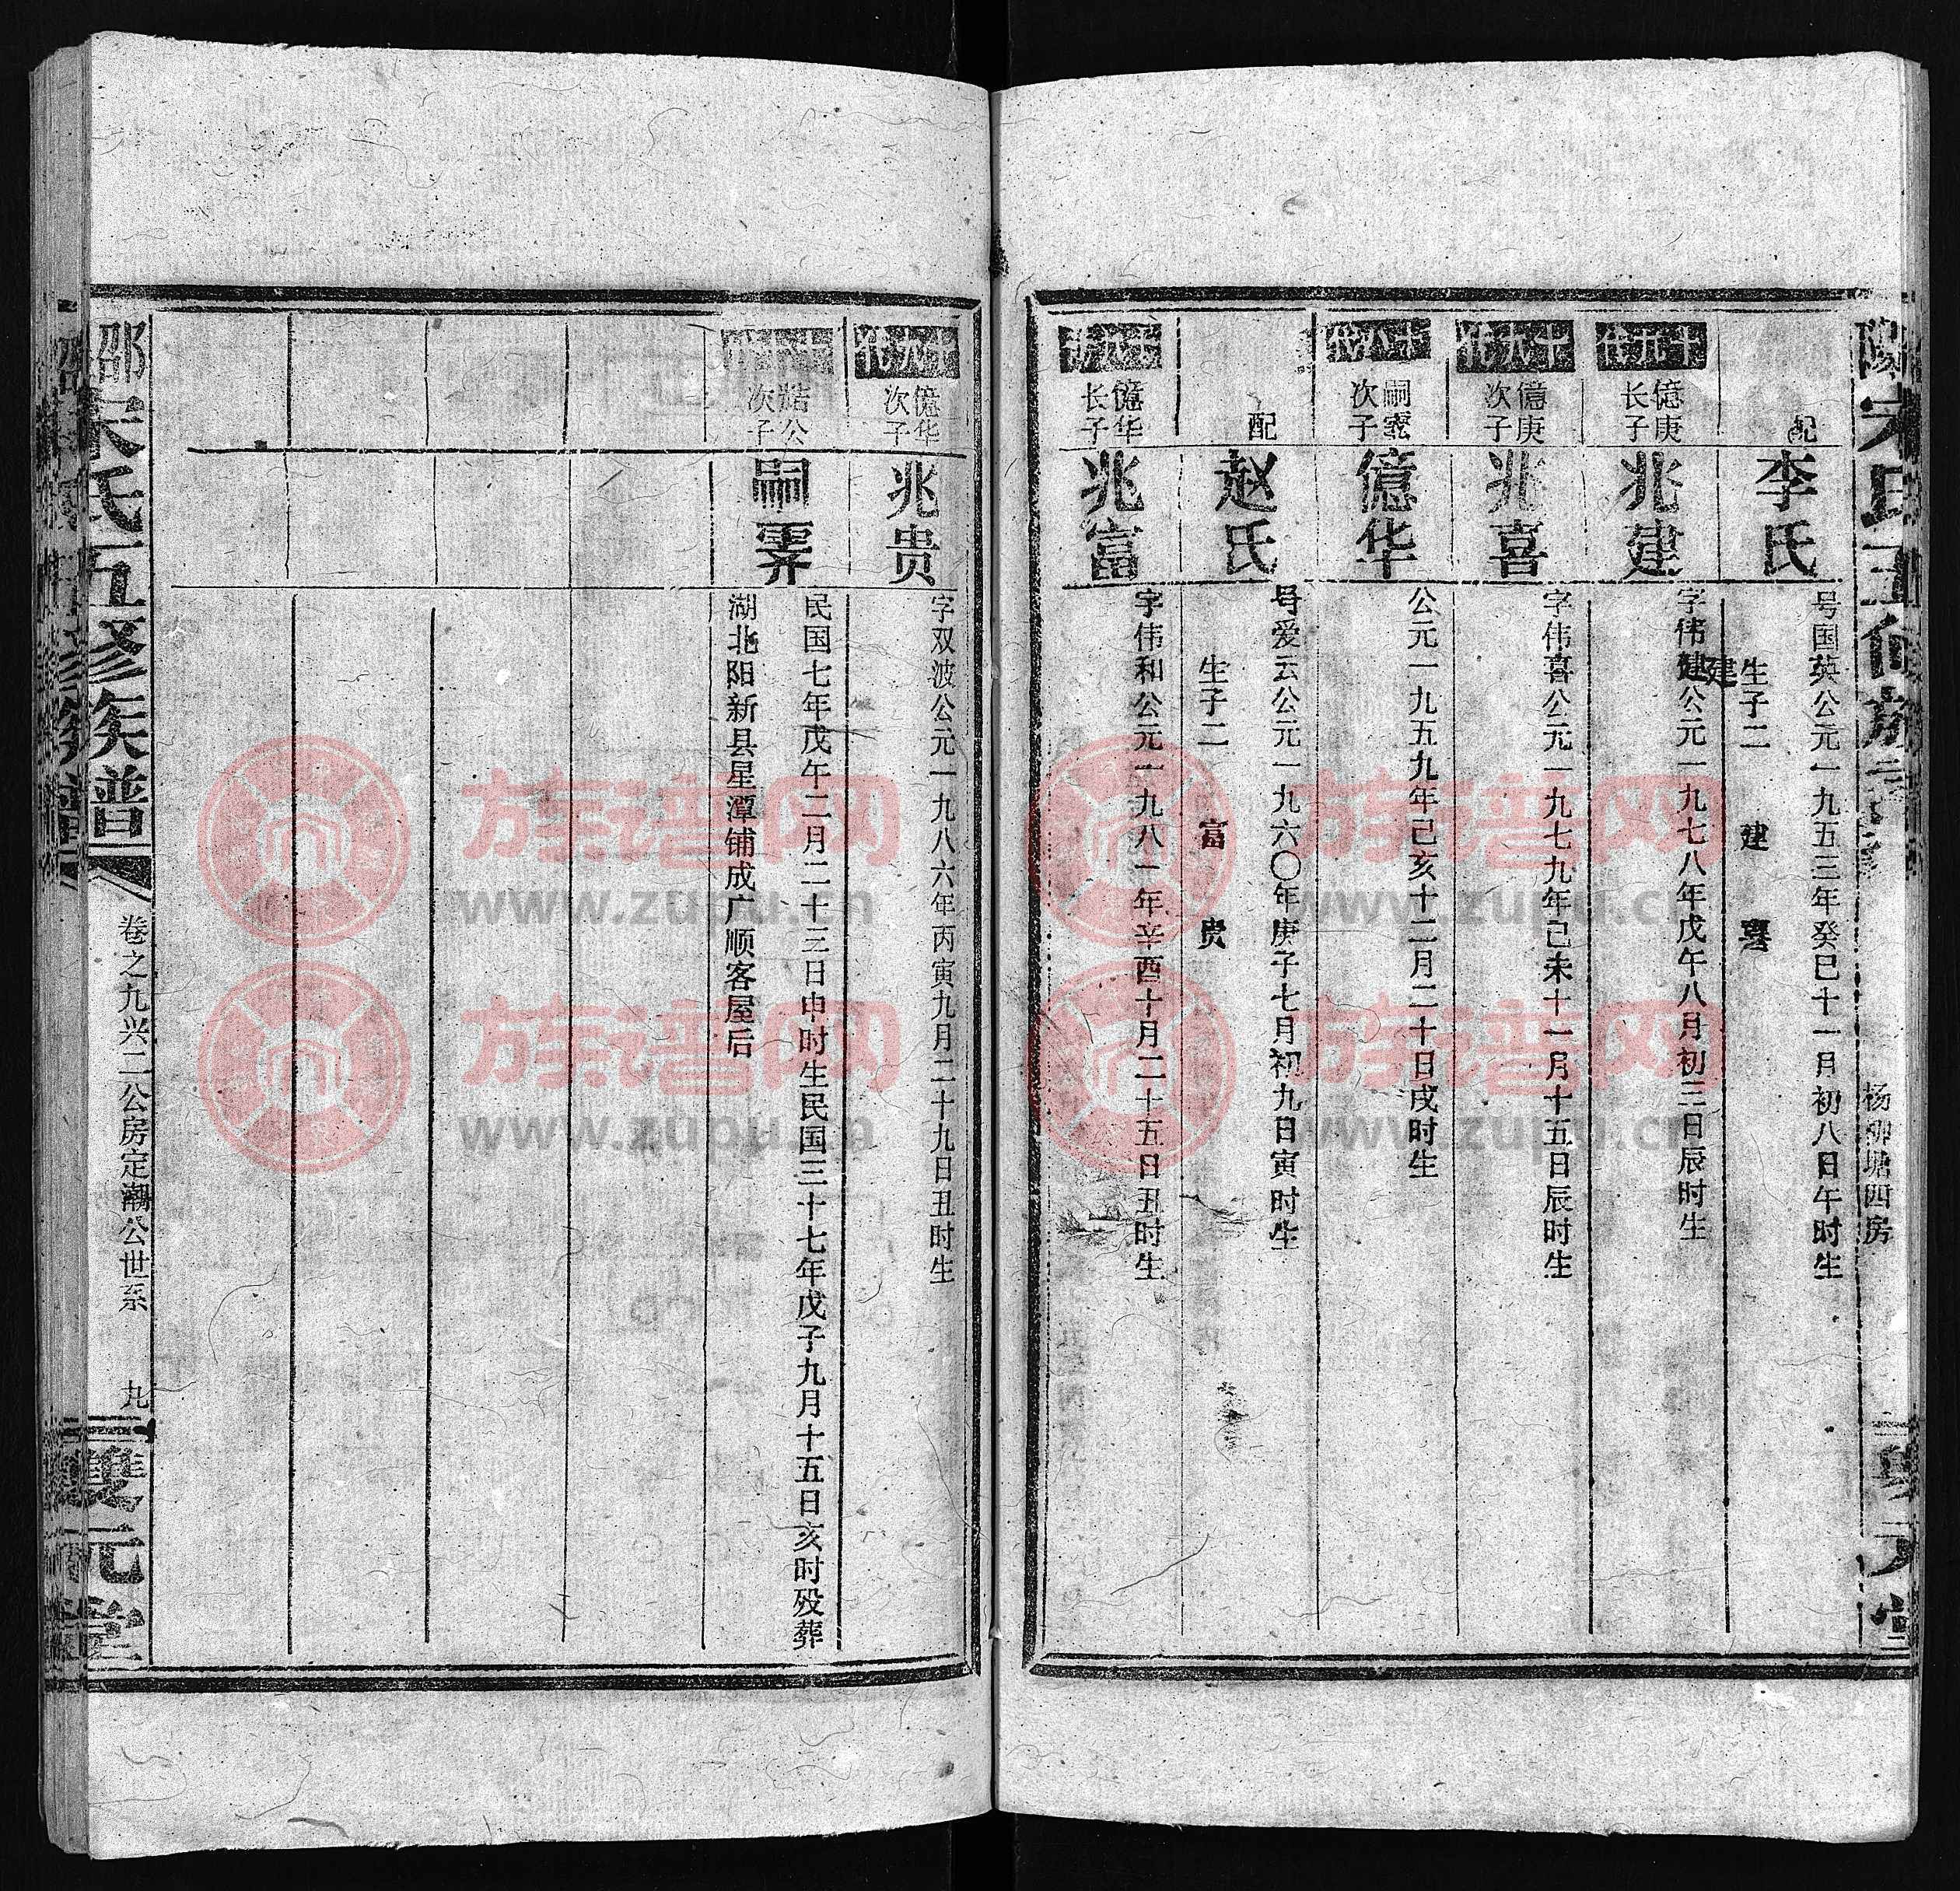 杨柳塘四房
配
李氏
号国英公元一九五三年癸巳十一月初八日午时生
生子二 建 喜
十九代
億庚长子
兆建
字伟建公元一九七八年戊午八月初三日辰时生
建
十九代
億庚次子
兆喜
字伟喜公元一九七九年己未十一月十五日辰时生
十八代
次子
億华
公元一九五九年己亥十二月二十日戌时生
配
赵氏
号爱云公元一九六〇年庚子七月初九日寅时生
生子二 富 贵
十九代
億华长子
兆富
字伟和公元一九八一年辛酉十月二十五日丑时生
十九代
億华次子
兆贵
字双波公元一九八六年丙寅九月二十九日丑时生
公次子
嗣霁
民国七年戊午二月二十三日申时生民国三十七年戊子九月十五日亥时殁葬
湖北阳新县星潭铺成广顺客屋后
邵
宋氏五修族谱
卷之九兴二公房定潮公世系
九
雙元堂
族谱网
www.zupu.cn
族谱网
www.zupu.cn
族谱网
www.zupu.cn
族谱网
www.zupu.cn